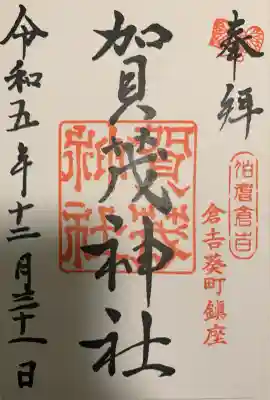 奉拝
伯耆倉吉
倉吉葵町鎮座
加賀茂神社
賀茂神社
令和五年十二月三十一日